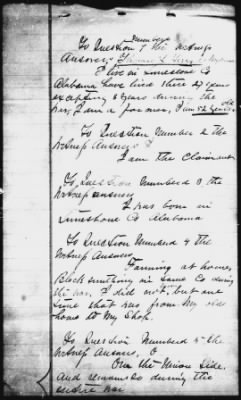 number
To Question 1 the witness
Answer: Thomas
I live in Limestone Co
Alabama have lived there 27 years
excepting 3 years during the
war, I am a farmer, I am 52 years old
To Question Number 2 the
witness Answers
I am the Claimant
To Question Numberd 3 the
witness answers
I was born in
Limestone Co Alabama
To Question Numberd 4 the
witness Answers
Farming at home,
Black smithing in same Co during
the war, I did not, but one
time that was from my old
home to my Shop.
To Question Numberd 5 the
witness Answers, O
On the Union Side,
and remained so during the
entire war